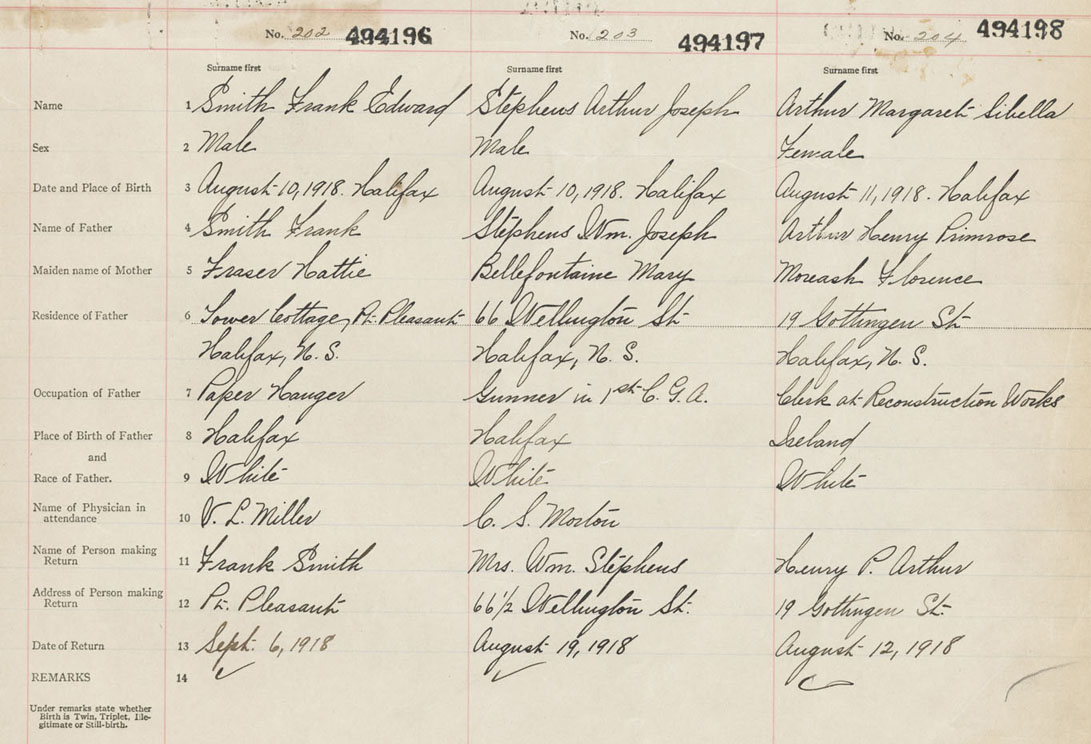 No. 202 494196 No. 203 494197 No. 204 494198
Surname first Surname first Surname first
Name 1 Smith Frank Edward Stephens Arthur Joseph Arthur Margaret Sibella
Sex 2 Male Male Female
Date and Place of Birth 3 August 10, 1918. Halifax August 10, 1918. Halifax August 11, 1918. Halifax
Name of Father 4 Smith Frank Stephens Wm. Joseph Arthur Henry Primrose
Maiden name of Mother 5 Fraser Hattie Bellefontaine Mary Moreash Florence
Residence of Father 6 Lower Cottage, Pt. Pleasant 66 Wellington St. 19 Gottingen St.
Halifax, N. S. Halifax, N. S. Halifax, N. S.
Occupation of Father 7 Paper Hanger Gunner in 1st C. G. A. Clerk at Reconstruction Works
Place of Birth of Father 8 Halifax Halifax Ireland
and
Race of Father. 9 White White White
Name of Physician in
attendance 10 V. L. Miller C. S. Morton
Name of Person making
Return 11 Frank Smith Mrs. Wm. Stephens Henry P. Arthur
Address of Person making
Return 12 Pt. Pleasant 66 1/2 Wellington St. 19 Gottingen St.
Date of Return 13 Sept. 6, 1918 August 19, 1918 August 12, 1918
REMARKS 14
Under remarks state whether
Birth is Twin, Triplet, Ille-
gitimate or Still-birth.